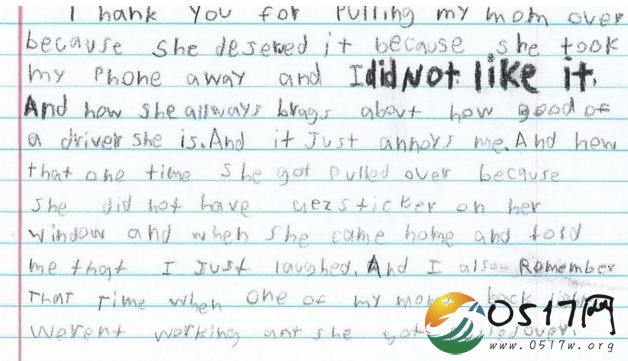 I hank you for Pulling my mom over
because she desered it because she took
my Phone away and I did Not like it.
And how she allways brags about how good of
a driver she is. And it Just annoys me. And how
that one time she got Pulled over because
she did not have sticker on her
window and when she came home and told
me that I Just laughed. And I also Remember
That Time when one of my back
werent working ant she got
0517网
www.0517w.org